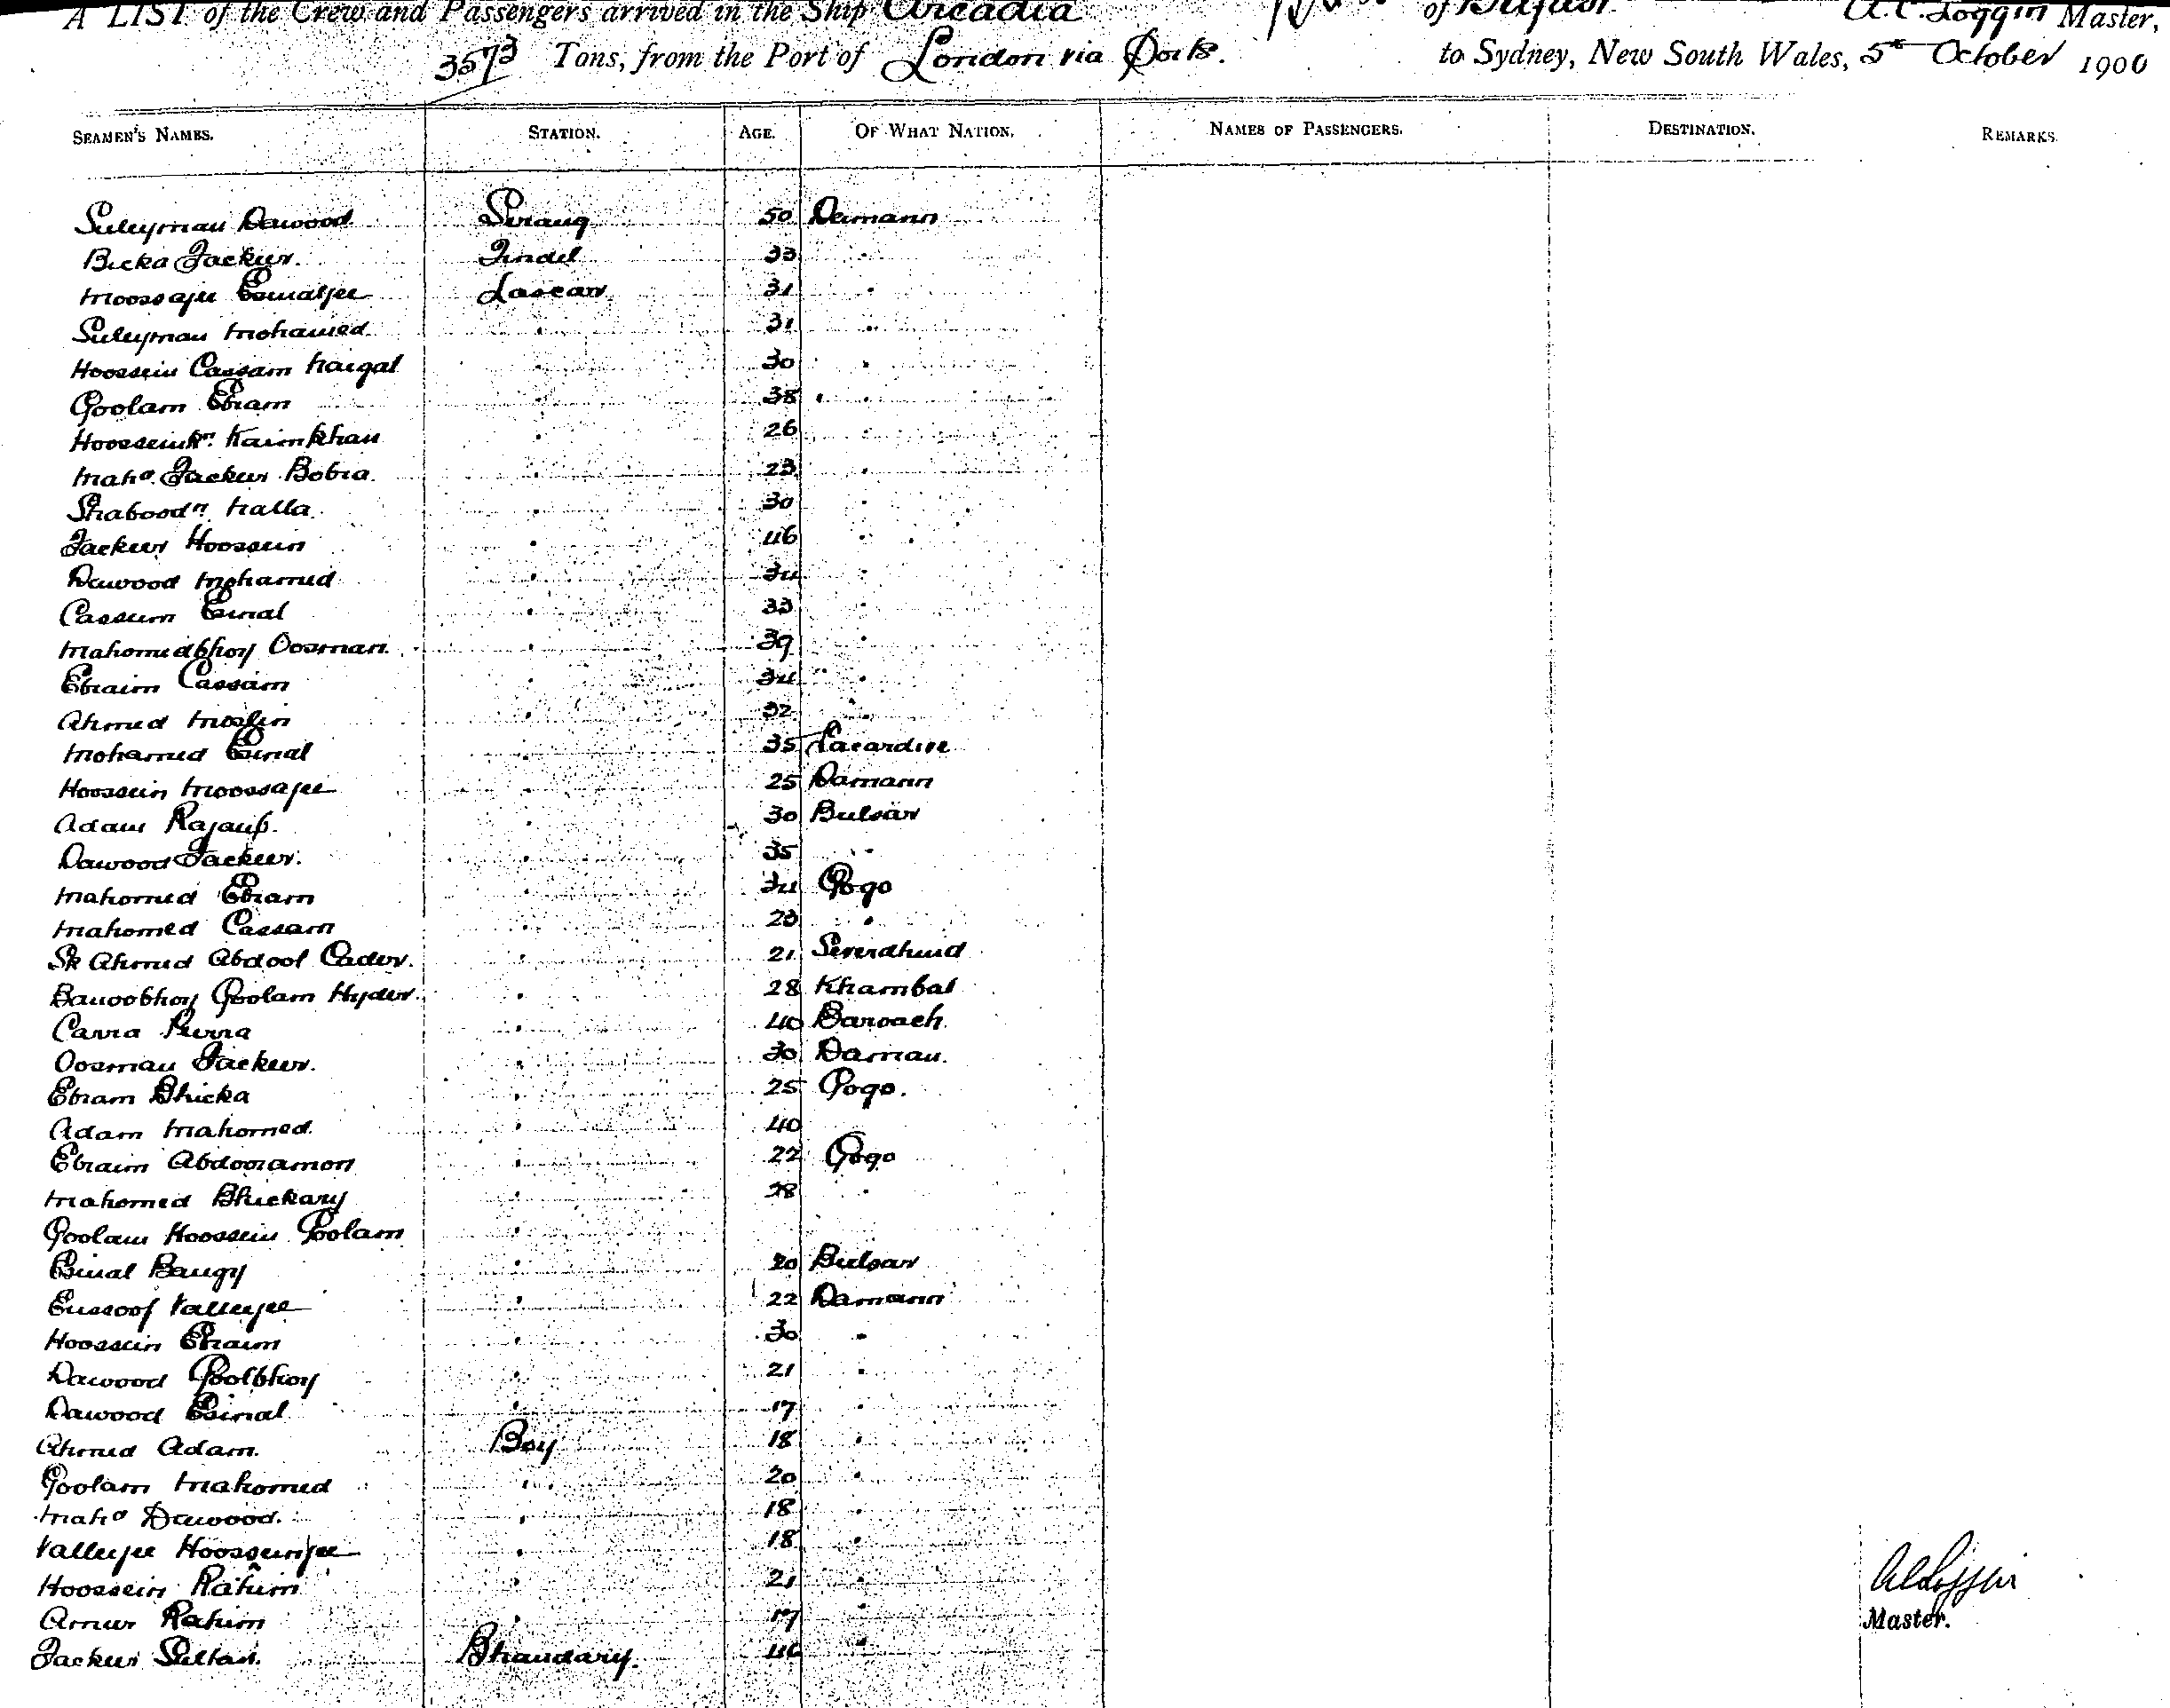 A LIST of the Crew and Passengers arrived in the Ship Arcadia of Belfast. A. C. Loggin Master,
3573 Tons, from the Port of London via Ports. to Sydney, New South Wales, 5th October 1900
SEAMEN'S NAMES. STATION. AGE. OF WHAT NATION. NAMES OF PASSENGERS. DESTINATION. REMARKS.
Suleyman Dawood Serang 50 Demann
Bicka Jackur. Tindel 33 "
Moossajee Esmaljee Lascar 31 "
Suleyman Mohamed " 31 "
Hoossein Cassam " 30 "
Goolam Ebram " 38 "
Hoosseinkn. Kaimkhan " 26 "
Mahd. Jackur Bobra. " 23 "
Shaboodn. " 30 "
Jackur Hoossein " 46 "
Dawood Mohamed " 34 "
Cassum Esmal " 33 "
Mahomedbhoy Oosman. " 39 "
Ebraim Cassam " 34 "
Ahmed " 32 "
Mohamed Esmal " 35
Hoossein Moossajee " 25 Damann
Adam Rajaub. " 30 Bulsar
Dawood Jackur. " 35 "
Mahomed Ebram " 34 Gogo
Mahomed Cassam " 23 "
Sk Ahmed Abdool Cader. " 21
Bawoobhoy Goolam Hyder. " 28 Khambat
Carra " 40 Baroach.
Oosman Jackur. " 30 Daman.
Ebram Bhicka " 25 Gogo.
Adam Mahomed. " 40
Ebraim Abdooramon " 22 Gogo
Mahomed Bhickary " 28 "
Goolam Hoossein Goolam "
Esmal Baugy " 20 Bulsar
Eussoof Valleejee " 22 Damann
Hoossein Ebraim " 30 "
Dawood Goolbhoy " 21 "
Dawood Esmal " 17 "
Ahmed Adam. Boy 18 "
Goolam Mahomed " 20 "
Mahd Dawood. " 18 "
Valleejee Hoosseinjee " 18 "
Hoossein Rahim " 21 "
Amur Rahim " 17 "
Jackur Sultan. Bhandary. 46 "
A C Loggin
Master.